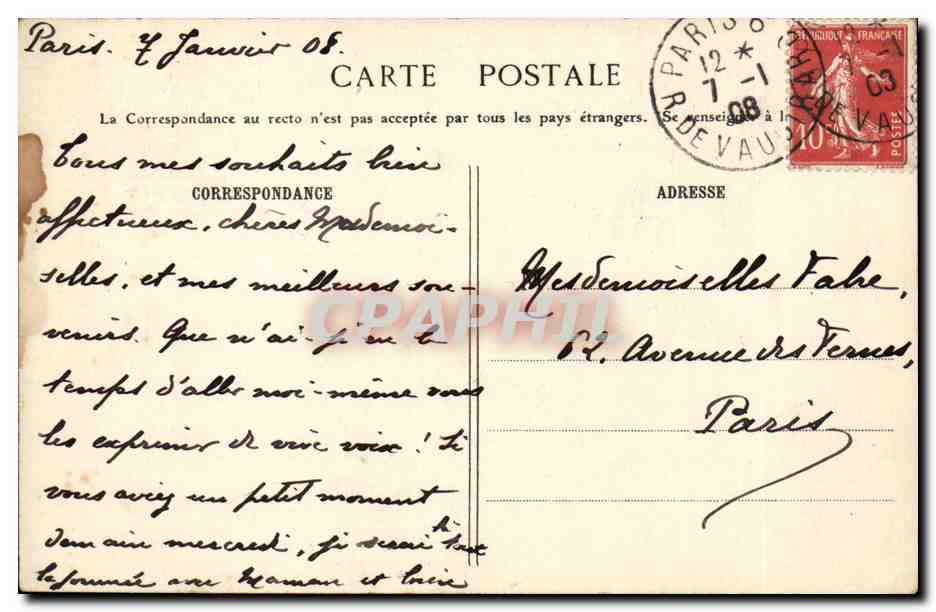 Paris. 7 Janvier 08.
PARIS 6
12 *
7 -1
08
R. DE VAU
REPUBLIQUE FRANÇAISE
10
POSTES
-1
03
DE VAU
CARTE POSTALE
La Correspondance au recto n'est pas acceptée par tous les pays étrangers. Se renseigner à la
Tous mes souhaits bien
CORRESPONDANCE
affectueux, chères Mademoi-
selles, et mes meilleurs sou-
venirs. Que n'ai-je eu le
temps d'aller moi-même vous
les exprimer de vive voix ! Si
vous aviez un petit moment
demain mercredi, je serai là tout
la journée avec Maman et
ADRESSE
Mesdemoiselles Fabre,
62, Avenue des Ternes,
Paris
CPAPHIL